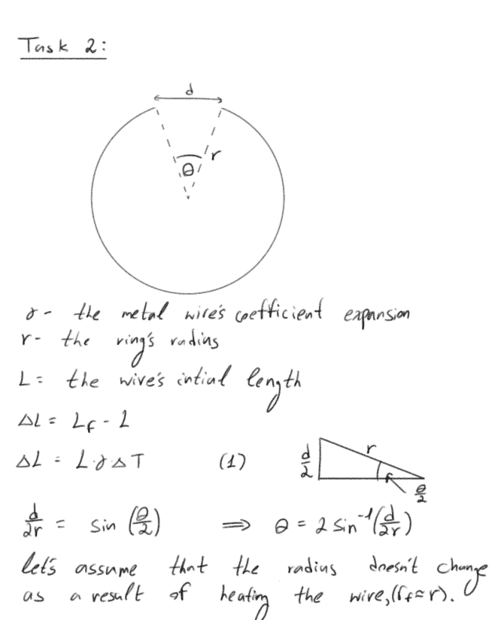 Task 2:
d
r
θ
γ - the metal wire's coefficient expansion
r - the ring's radius
L = the wire's intial length
ΔL = Lf - L
ΔL = L·γΔT (1)
d/2 r θ/2
d/2r = sin (θ/2) ⟹ θ = 2 sin⁻¹(d/2r)
let's assume that the radius doesn't change
as a result of heating the wire, (rf ≈ r).